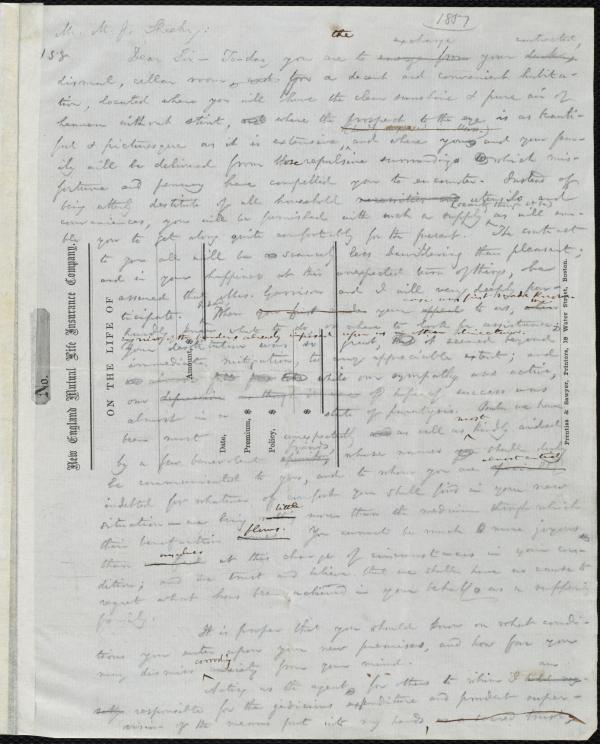 1857
M. M. J.
158
Dear Sir — To-day you are to exchange your contracted,
dismal, cellar room, for a decent and convenient habita-
tion, located where you will have the clear sunshine & pure air of
heaven without stint, where the prospect to the eye is as beauti-
ful & picturesque as it is extensive and where you and your fam-
ily will be delivered from those repulsive surroundings which mis-
fortune and penury have compelled you to encounter. Instead of
being utterly destitute of all household utensils and
conveniences, you will be furnished with such a supply as will ena-
ble you to get along quite comfortably for the present. The contrast
to you all will be scarcely less bewildering than pleasant;
and in your happiness at this unexpected turn of things, be
assured that Mrs. Garrison and I will very deeply par-
ticipate. When your appeal to us,
hardly knew what to do or where to look for assistance,
in view of the burdens already imposed upon us in other directions.
Your destitution was so great, it seemed beyond
immediate mitigation to any appreciable extent; and
while our sympathy was active,
our hope of success was
almost in a state of paralysis. But we have
been most unexpectedly as well as most kindly aided
by a few benevolent friends, whose names shall duly
be communicated to you, and to whom you are almost entirely
indebted for whatever of comfort you shall find in your new
situation — we being little more than the medium through which
their benefaction flows. You cannot be much more joyous
than ourselves at this change of circumstances in your con-
dition; and we trust and believe that we shall have no cause to
regret what has been achieved in your behalf, as a suffering
family.
It is proper that you should know on what condi-
tions you enter upon your new premises, and how far you
may dismiss corroding anxiety from your mind.
Acting as the agent for others to whom I am
responsible for the judicious expenditure and prudent super-
vision of the means put into my hands,
No.
New England Mutual Life Insurance Company.
ON THE LIFE OF
Amount, $
Date,
Premium, $
Policy, $
$
Prentiss & Sawyer, Printers, 19 Water Street, Boston.